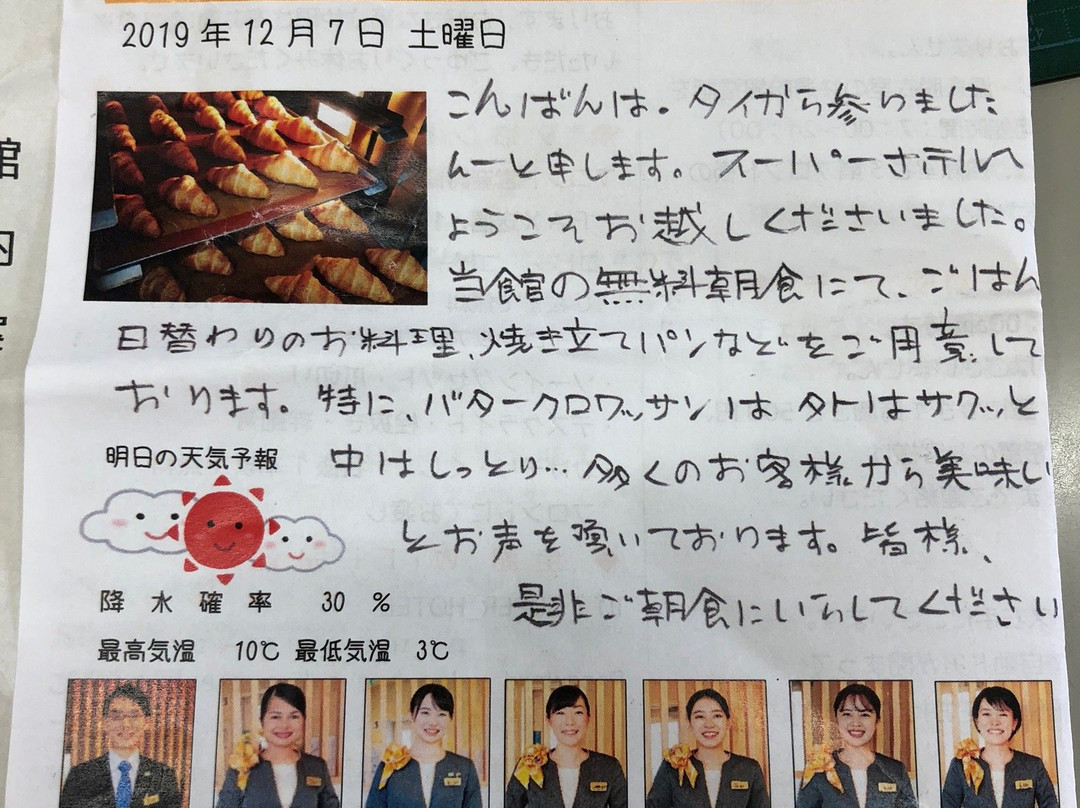 2019年12月7日 土曜日
こんばんは。タイから参りました
んーと申します。スーパーホテルへ
ようこそお越しくださいました。
当館の無料朝食にて、ごはん
日替わりのお料理、焼き立てパンなどをご用意して
おります。特に、バタークロワッサンは外はサクッと
中はしっとり…多くのお客様から美味しい
とお声を頂いております。皆様、
是非ご朝食にいらしてください
明日の天気予報
降水確率 30 %
最高気温 10℃ 最低気温 3℃
館
内